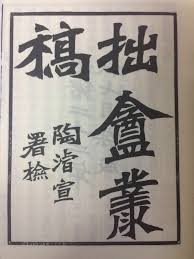 拙盦叢
稿
陶濬宣
署檢